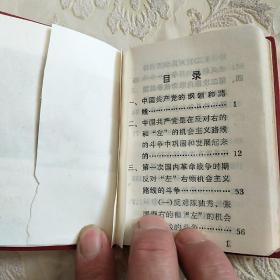 目录
一、中国共产党的纲领和路
线 1
二、中国共产党是在反对右的
和“左”的机会主义路线
的斗争中巩固和发展起来
的 12
三、第一次国内革命战争时期
反对“左”右倾机会主义
路线的斗争 53
(一)反对陈独秀、张
国焘右的和“左”的机会
主义的斗争 56